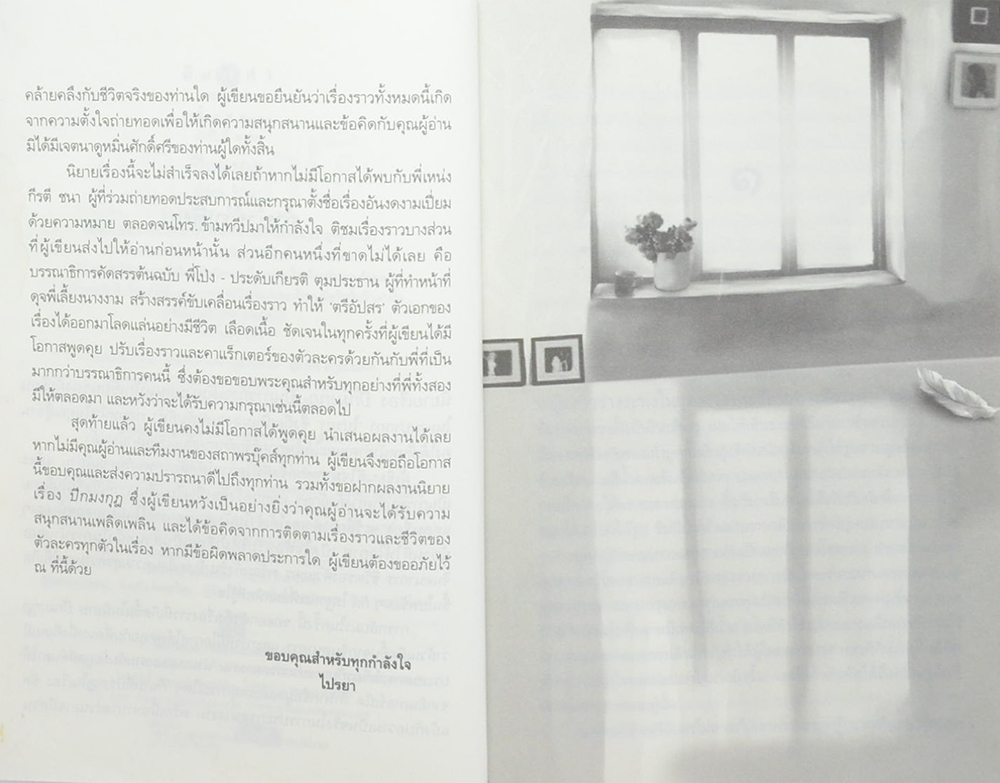 คล้ายคลึงกับชีวิตจริงของท่านใด ผู้เขียนขอยืนยันว่าเรื่องราวทั้งหมดนี้เกิด
จากความตั้งใจถ่ายทอดเพื่อให้เกิดความสนุกสนานและข้อคิดกับคุณผู้อ่าน
มิได้มีเจตนาดูหมิ่นศักดิ์ศรีของท่านผู้ใดทั้งสิ้น
นิยายเรื่องนี้จะไม่สำเร็จลงได้เลยถ้าหากไม่มีโอกาสได้พบกับพี่เหน่ง
กีรตี ชนา ผู้ที่ร่วมถ่ายทอดประสบการณ์และกรุณาตั้งชื่อเรื่องอันงดงามเปี่ยม
ด้วยความหมาย ตลอดจนโทร. ข้ามทวีปมาให้กำลังใจ ติชมเรื่องราวบางส่วน
ที่ผู้เขียนส่งไปให้อ่านก่อนหน้านั้น ส่วนอีกคนหนึ่งที่ขาดไม่ได้เลย คือ
บรรณาธิการคัดสรรต้นฉบับ พี่โป่ง - ประดับเกียรติ ตุมประธาน ผู้ที่ทำหน้าที่
ดุจพี่เลี้ยงนางงาม สร้างสรรค์ขับเคลื่อนเรื่องราว ทำให้ ‘ตรีอัปสร’ ตัวเอกของ
เรื่องได้ออกมาโลดแล่นอย่างมีชีวิต เลือดเนื้อ ชัดเจนในทุกครั้งที่ผู้เขียนได้มี
โอกาสพูดคุย ปรับเรื่องราวและคาแร็กเตอร์ของตัวละครด้วยกันกับพี่ที่เป็น
มากกว่าบรรณาธิการคนนี้ ซึ่งต้องขอขอบพระคุณสำหรับทุกอย่างที่พี่ทั้งสอง
มีให้ตลอดมา และหวังว่าจะได้รับความกรุณาเช่นนี้ตลอดไป
สุดท้ายแล้ว ผู้เขียนคงไม่มีโอกาสได้พูดคุย นำเสนอผลงานได้เลย
หากไม่มีคุณผู้อ่านและทีมงานของสถาพรบุ๊คส์ทุกท่าน ผู้เขียนจึงขอถือโอกาส
นี้ขอบคุณและส่งความปรารถนาดีไปถึงทุกท่าน รวมทั้งขอฝากผลงานนิยาย
เรื่อง ปีกมงกุฎ ซึ่งผู้เขียนหวังเป็นอย่างยิ่งว่าคุณผู้อ่านจะได้รับความ
สนุกสนานเพลิดเพลิน และได้ข้อคิดจากการติดตามเรื่องราวและชีวิตของ
ตัวละครทุกตัวในเรื่อง หากมีข้อผิดพลาดประการใด ผู้เขียนต้องขออภัยไว้
ณ ที่นี้ด้วย
ขอบคุณสำหรับทุกกำลังใจ
ไปรยา